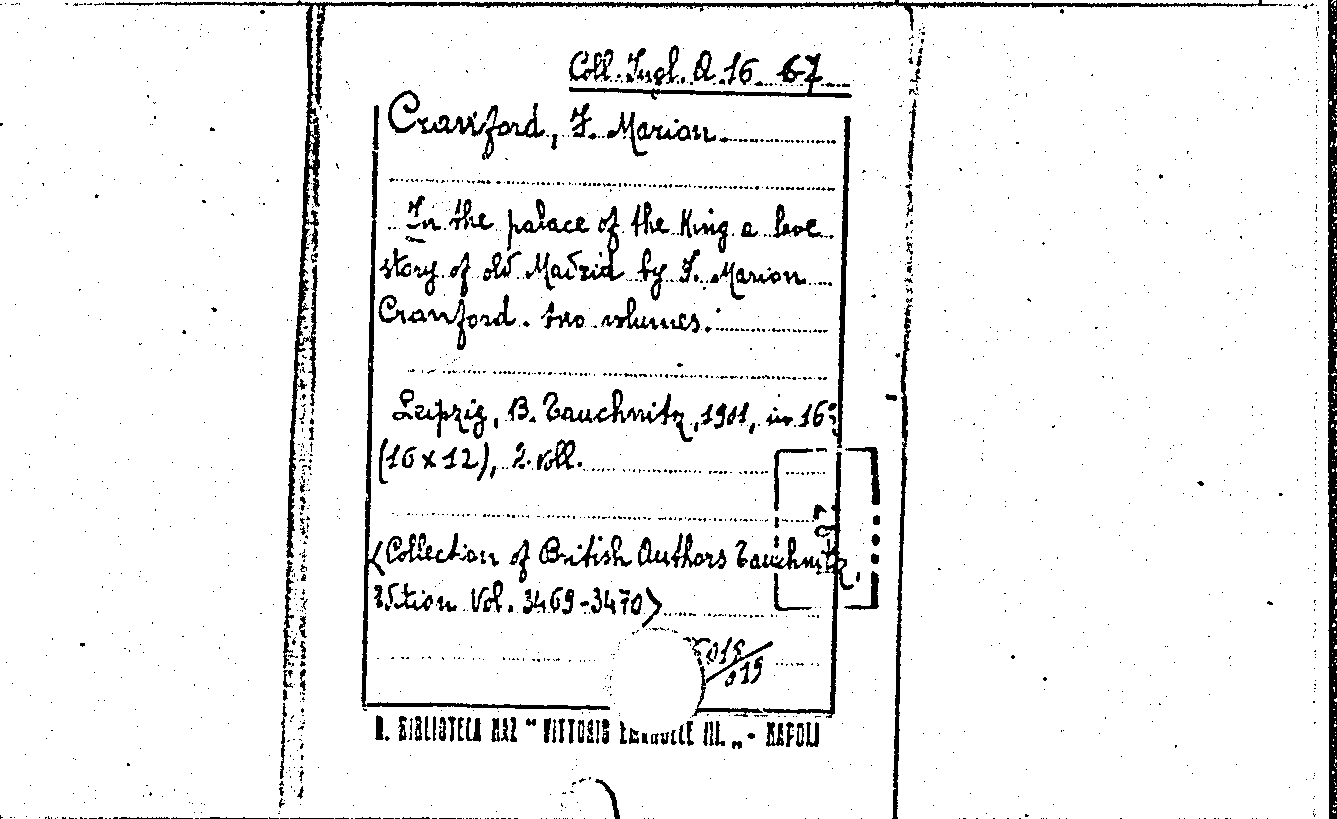 Coll. Ingl. A. 16 67
Crawford, F. Marion.
In the palace of the King a love
story of old Madrid by F. Marion
Crawford. two volumes.
Leipzig, B. Tauchnitz, 1901, in 16º
(16 x 12), 2 voll.
(Collection of British Authors Tauchnitz,
Edition Vol. 3469-3470)
018/019
R. BIBLIOTECA NAZ " VITTORIO EMANUELE III. „ - NAPOLI